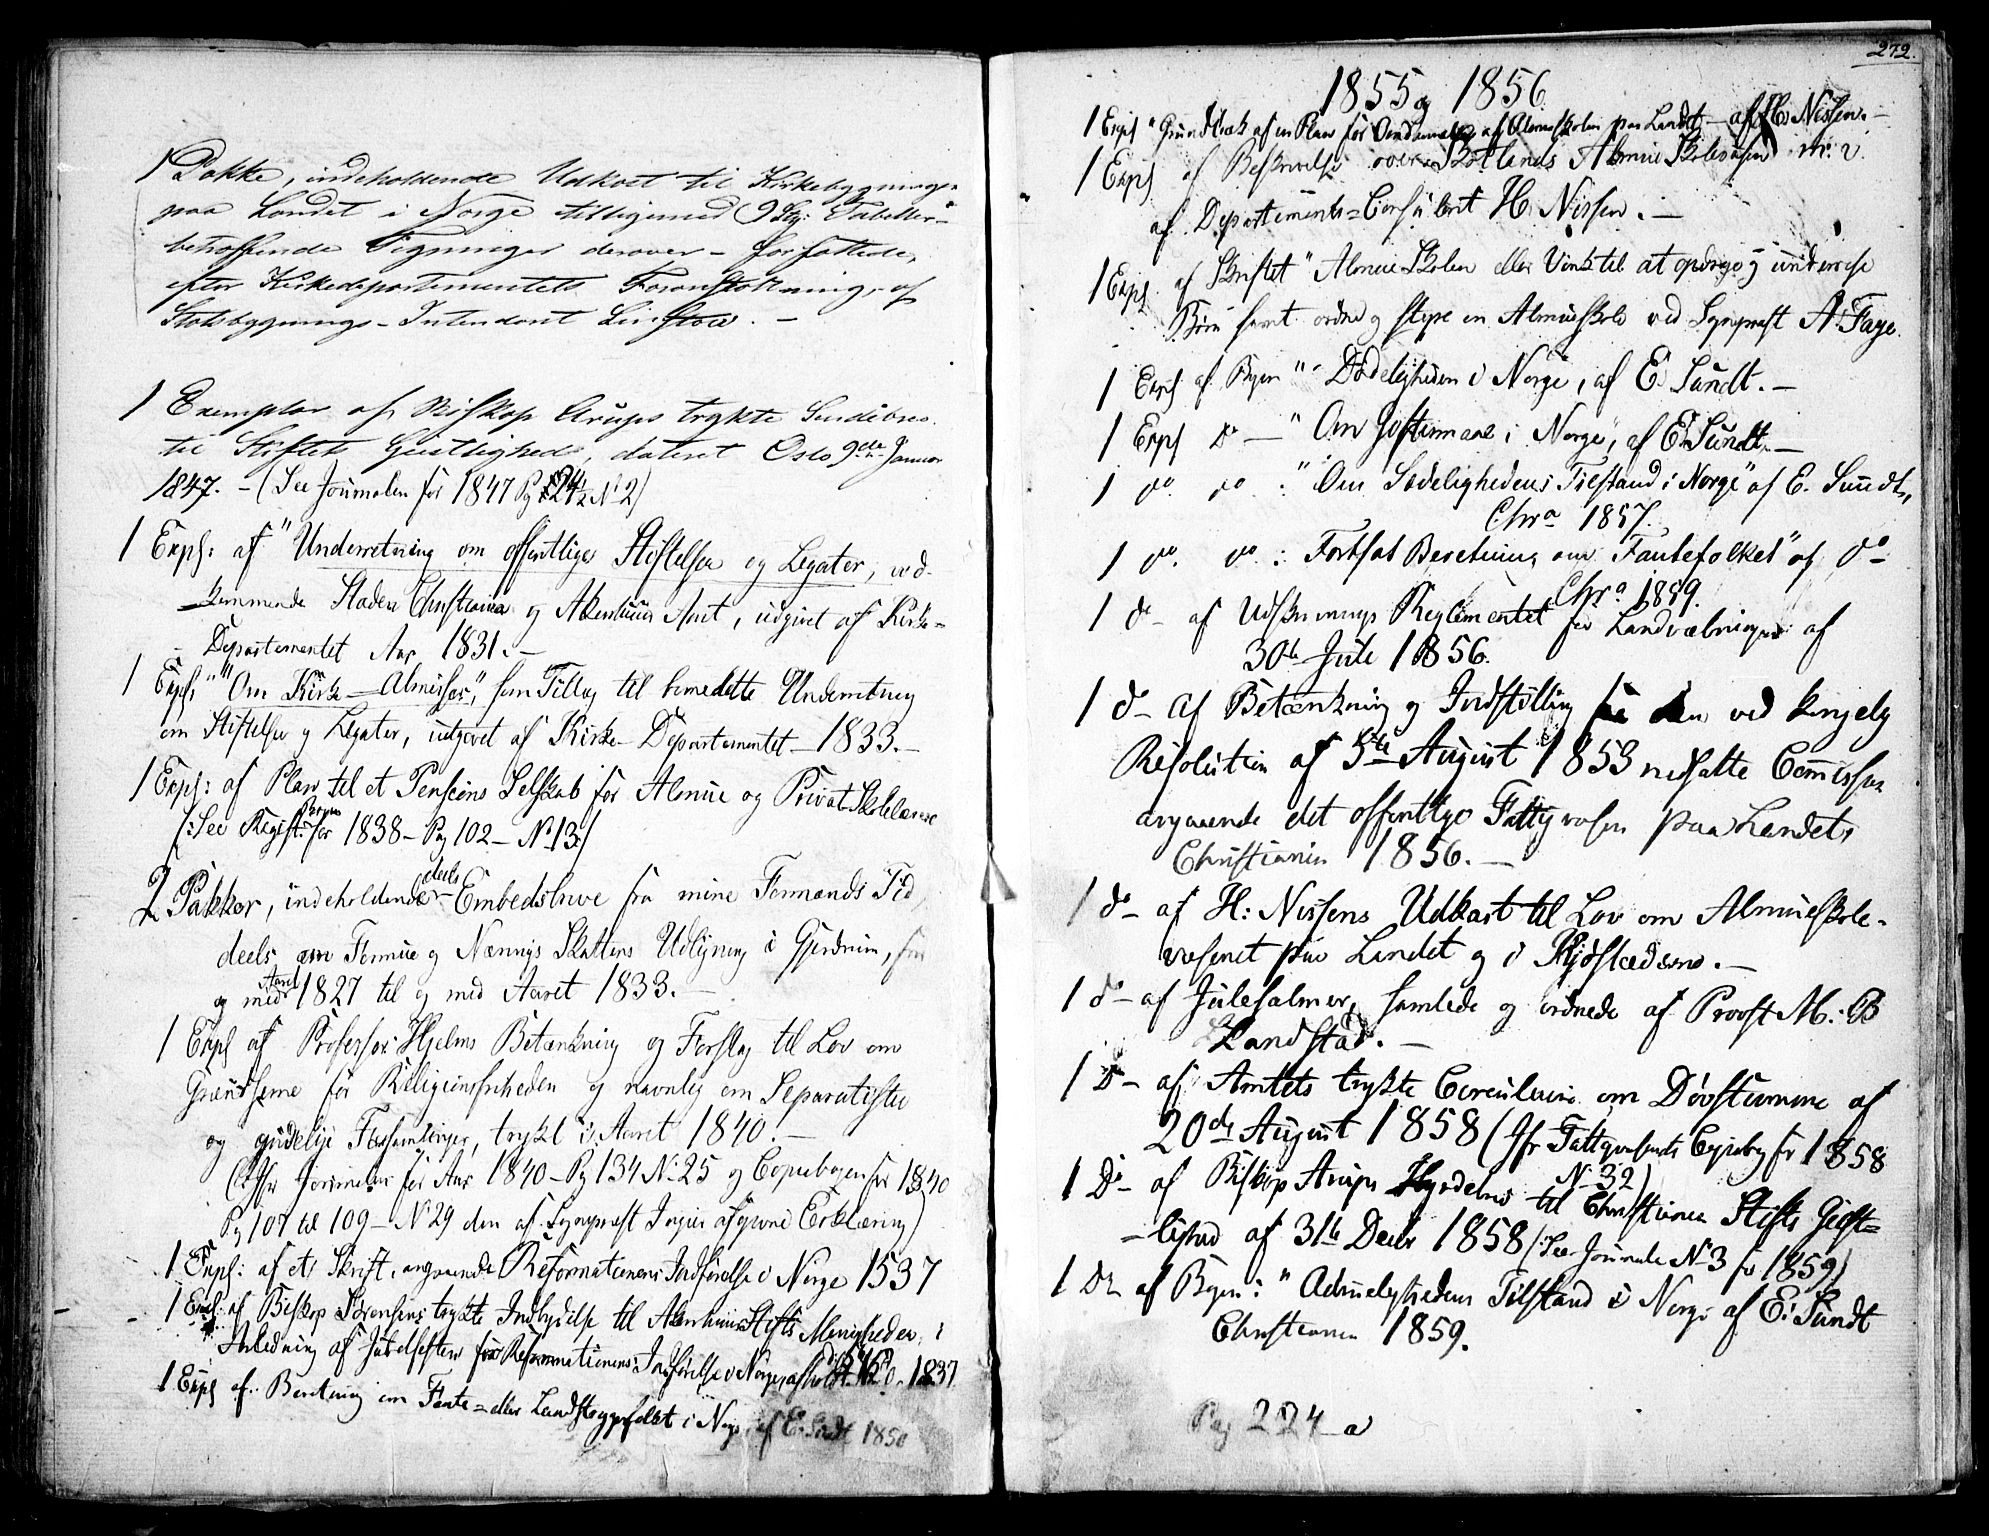 1 Pakke, indeholdende Udkast til Kirkebygninger
paa Landet i Norge tilligemed 9 Stk: Tabeller
betræffende Tegninger derover – forfattede,
efter Kirkedepartementets Foranstaltning, af
Slotsbygnings-Intendant Linstow. –
1 Exemplar af Biskop Arups trykte Sendebrev
til Stiftets Geistlighed, dateret Oslo 9de Januar
1847. – (See Journalen for 1847 Pag N: 2)
1 Expl: af "Underretning om offentlige Stiftelser og Legater, ved-
kommende Staden Christiania og Akershuus Amt, udgivet af Kirke-
Departementet Aar 1831. –
1 Expl: "Om Kirke-Almisser", som Tillæg til bemeldte Underretning
om Stiftelser og Legater, udgivet af Kirke-Departementet – 1833. –
1 Expl: af Plan til et Pensions Selskab for Almue og Privat Skolelærere
(: See Regist: for 1838 – Pag 102 – No 13:)
2 Pakker, indeholdende deels Embedsbreve fra mine Formænds Tid,
deels om Formue og Nærings Skattens Udligning i Gjerdrum, fra
og med Aaret 1827 til og med Aaret 1833. –
1 Expl af Professor Hjelms Betænkning og Forslag til Lov om
Grændserne for Religionsfriheden og navnlig om Separatister
og gudelige Forsamlinger, trykt i Aaret 1840. –
(Cfr Journalen for Aar 1840 – Pag 134 N: 25 og Copiebogen for 1840
Pag 107 til 109 – N: 29 den af Sognepræst afgivne Erklæring)
1 Expl: af et Skrift, angaaende Reformationens Indførelse i Norge 1537
1 Expl: af Biskop Sørensens trykte Indbydelse til Akershuus Stifts Menigheder, i
Anledning af Jubelfesten for Reformationens Indførelse i Norge, 1837
1 Expl af Beretning om Fante- eller Landstrygerfolket i Norge, af E. Sundt 1850
272.
1855 og 1856
1 Expl "Grundtræk af en Plan for Omdannelse af Almueskolen paa Landet – af H. Nissen. –
1 Expl af Beskrivelse over Skotlands Almue Skolevæsen m: v.
af Departements-Consulent H. Nissen. –
1 Expl. af Skriftet "Almue Skolen eller Vink til at opdrage og undervise
Børn samt ordne og styre en Almueskole ved Sognepræst A. Faye.
1 Expl af Bogen "Dødeligheden i Norge, af E. Sundt. –
1 Expl Do – "Om Giftermaal i Norge", af E. Sundt. –
1 do. do : "Om Sædelighedens Tilstand i Norge" af E. Sundt,
Chra 1857.
1 do. do. : Fortsat Beretning om Fantefolket" af Do –
Chra 1859.
1 do – af Udskrivnings Reglementet for Landværningen af
30te Juli 1856.
1 do – af Betænkning og Indstilling fra den ved kongelig
Resolution af 5te August 1853 nedsatte Commission
angaaende det offentlige Fattigvæsen paa Landet,
Christiania 1856. –
1 do – af H: Nissens Udkast til Lov om Almueskole-
væsenet paa Landet og i Kjøbstæderne. –
1 do – af Julesalmer, samlede og ordnede af Provst M: B
Landstad. –
1 Do – af Amtets trykte Circulaire om Døvstumme af
20de August 1858 (Cfr Fattigvæsenets Copiebog for 1858
N: 32)
1 Do – af Biskop Arups Hyrdebrev til Christiania Stifts Geist-
lighed af 31te Decbr 1858 (: See Journale No 3 for 1859)
1 Do af Bogen: "Ædrueligheden Tilstand i Norge af E: Sundt
Christiania 1859.
Pag 224 a